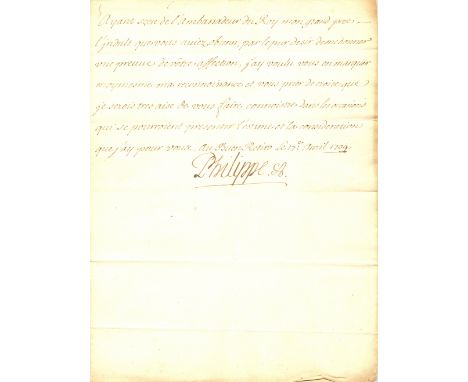 Ayant sceu de l'ambassadeur du Roy mon grand pere
l'indult que vous aviez obtenu, par le pur desir de me donner
une preuve de vôtre affection, j'ay voulu vous en marquer
moymesme ma reconnoissance et vous prier de croire que
je serois tres aise de vous faire connoistre dans les occasions
qui se pourroient presenter l'estime et la consideration
que j'ay pour vous. au Buen Retiro le avril
Philippe